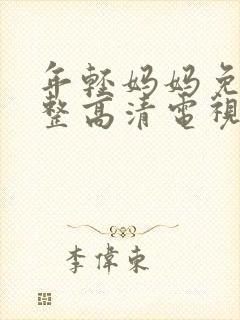 年輕媽媽免
整高清電視
李偉東